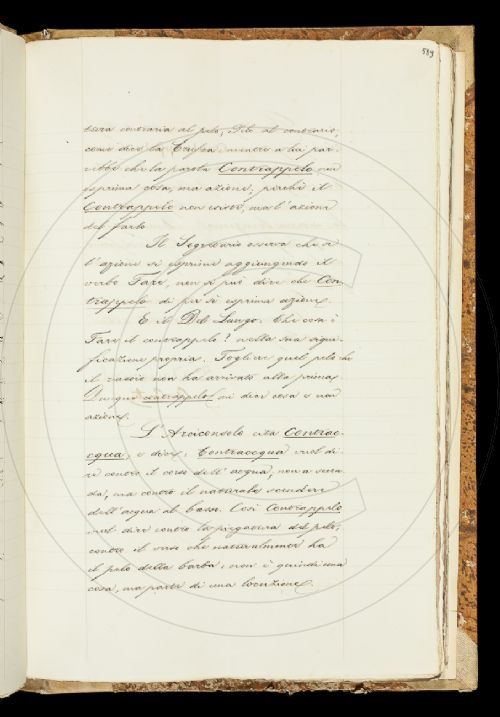 589
contraria al pelo, Dite al contrario,
come dice la Crusca mentre a lui par-
rebbe che la parola Contrappelo non
esprima cosa, ma azione, perchè il
Contrappelo non esiste, ma l'azione
del farlo
Il Segretario osserva che se
l'azione si esprime aggiungendo il
verbo Fare, non si può dire che Con-
trappelo di per sè esprima azione.
E il Del Lungo. Che cos'è
Fare il contrappelo? nella sua signi-
ficazione propria. Togliere quel pelo che
il rasoio non ha arrivato alla prima.
Dunque contrappelo mi dice cosa e non
azione.
L'Arciconsolo cita Contrac-
qua, e dice: Contracqua vuol di-
re contro il corso dell'acqua, non a secon-
da, ma contro il naturale scendere
dell'acqua al basso. Così Contrappelo
vuol dire contro la piegatura del pelo,
contro il verso che naturalmente ha
il pelo della barba; non è quindi una
cosa, ma parte di una locuzione.